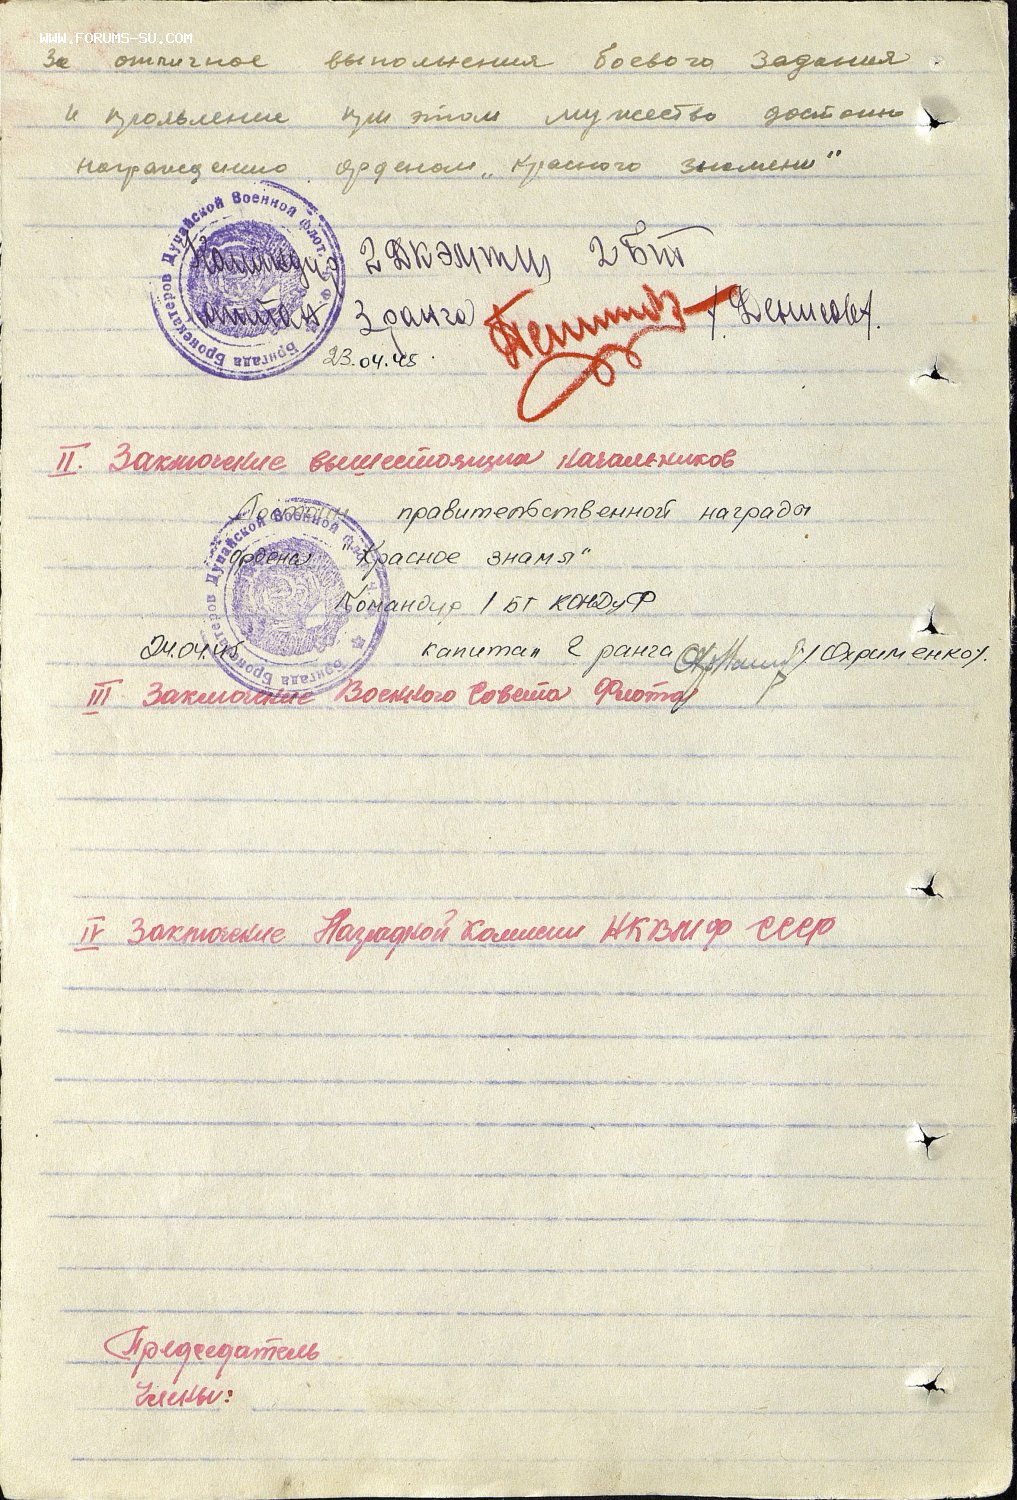 WWW.FORUMS-SU.COM
За отличное выполнения боевого задания
и проявление при этом мужество достоин
награждению орденом „Красного знамени"
Бригада Бронекатеров Дунайской Военной Флот.
Командир 2 БТ
капитан 3 ранга /Денисов/.
23.04.45
II. Заключение вышестоящих начальников
Достоин правительственной награды
ордена "Красное знамя"
Бригада Бронекатеров Дунайской Военной Флот.
Командир 1 БТ КОНДуФ
24.04.45 капитан 2 ранга /Охрименко/.
III Заключение Военного Совета Флота
IV Заключение Наградной Комиссии НКВМФ СССР
Председатель
Члены: